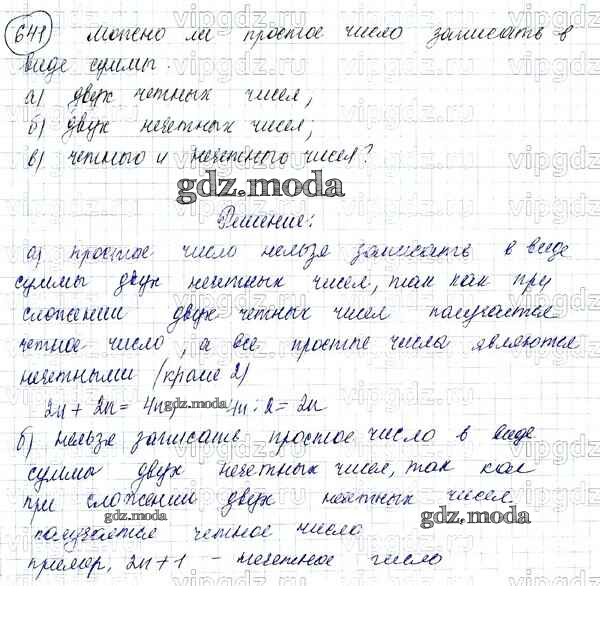 641 Можно ли простое число записать в
виде суммы.
а) двух четных чисел,
б) двух нечетных чисел;
в) четного и нечетного чисел?
gdz.moda
Решение:
а) простое число нельзя записать в виде
суммы двух нечетных чисел, так как при
сложении двух четных чисел получается
четное число, а все простые числа являются
нечетными (кроме 2)
2n + 2n = 4n gdz.moda 4n : 2 = 2n
б) нельзя записать простое число в виде
суммы двух нечетных чисел, так как
при сложении двух нечетных чисел
gdz.moda gdz.moda
получается четное число
пример, 2n + 1 – нечетное число